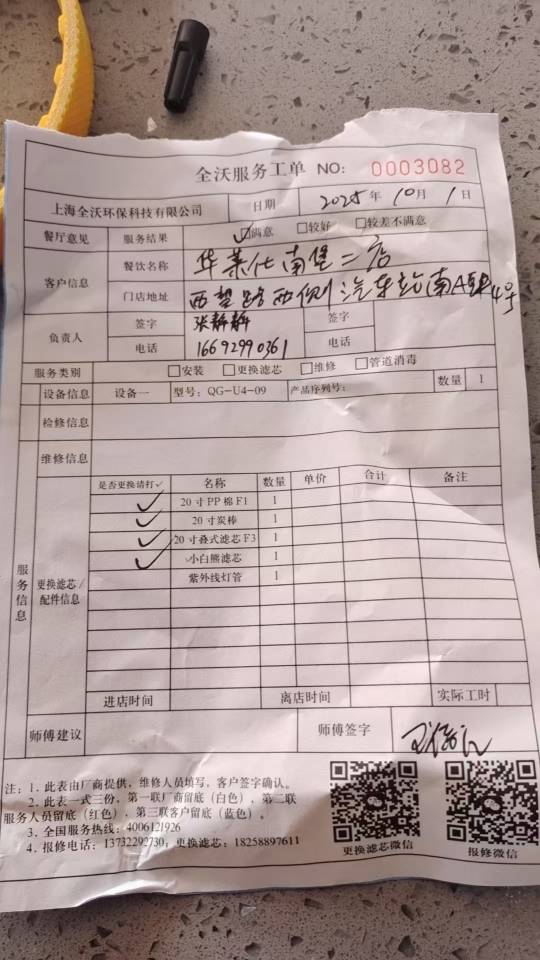 全沃服务工单 NO: 0003082
上海全沃环保科技有限公司 日期 2025年10月1日
餐厅意见 服务结果 ☑满意 □较好 □较差不满意
客户信息 餐饮名称 华莱仕南堡二店
门店地址 西塹路西侧汽车站南A区4号
负责人 签字 张静静 签字
电话 16692990361 电话
服务类别 □安装 □更换滤芯 □维修 □管道消毒
设备信息 设备一 型号: QG-U4-09 产品序列号: 数量 1
检修信息
维修信息
服务信息
更换滤芯/配件信息
是否更换请打✓ 名称 数量 单价 合计 备注
✓ 20寸PP棉F1 1
✓ 20寸炭棒 1
✓ 20寸叠式滤芯F3 1
✓ 小白熊滤芯 1
紫外线灯管 1
进店时间 离店时间 实际工时
师傅建议 师傅签字
注: 1. 此表由厂商提供, 维修人员填写, 客户签字确认。
2. 此表一式三份, 第一联厂商留底(白色), 第二联
服务人员留底(红色), 第三联客户留底(蓝色)。
3. 全国服务热线: 4006121926
4. 报修电话: 13732292730; 更换滤芯: 18258897611
更换滤芯微信 报修微信